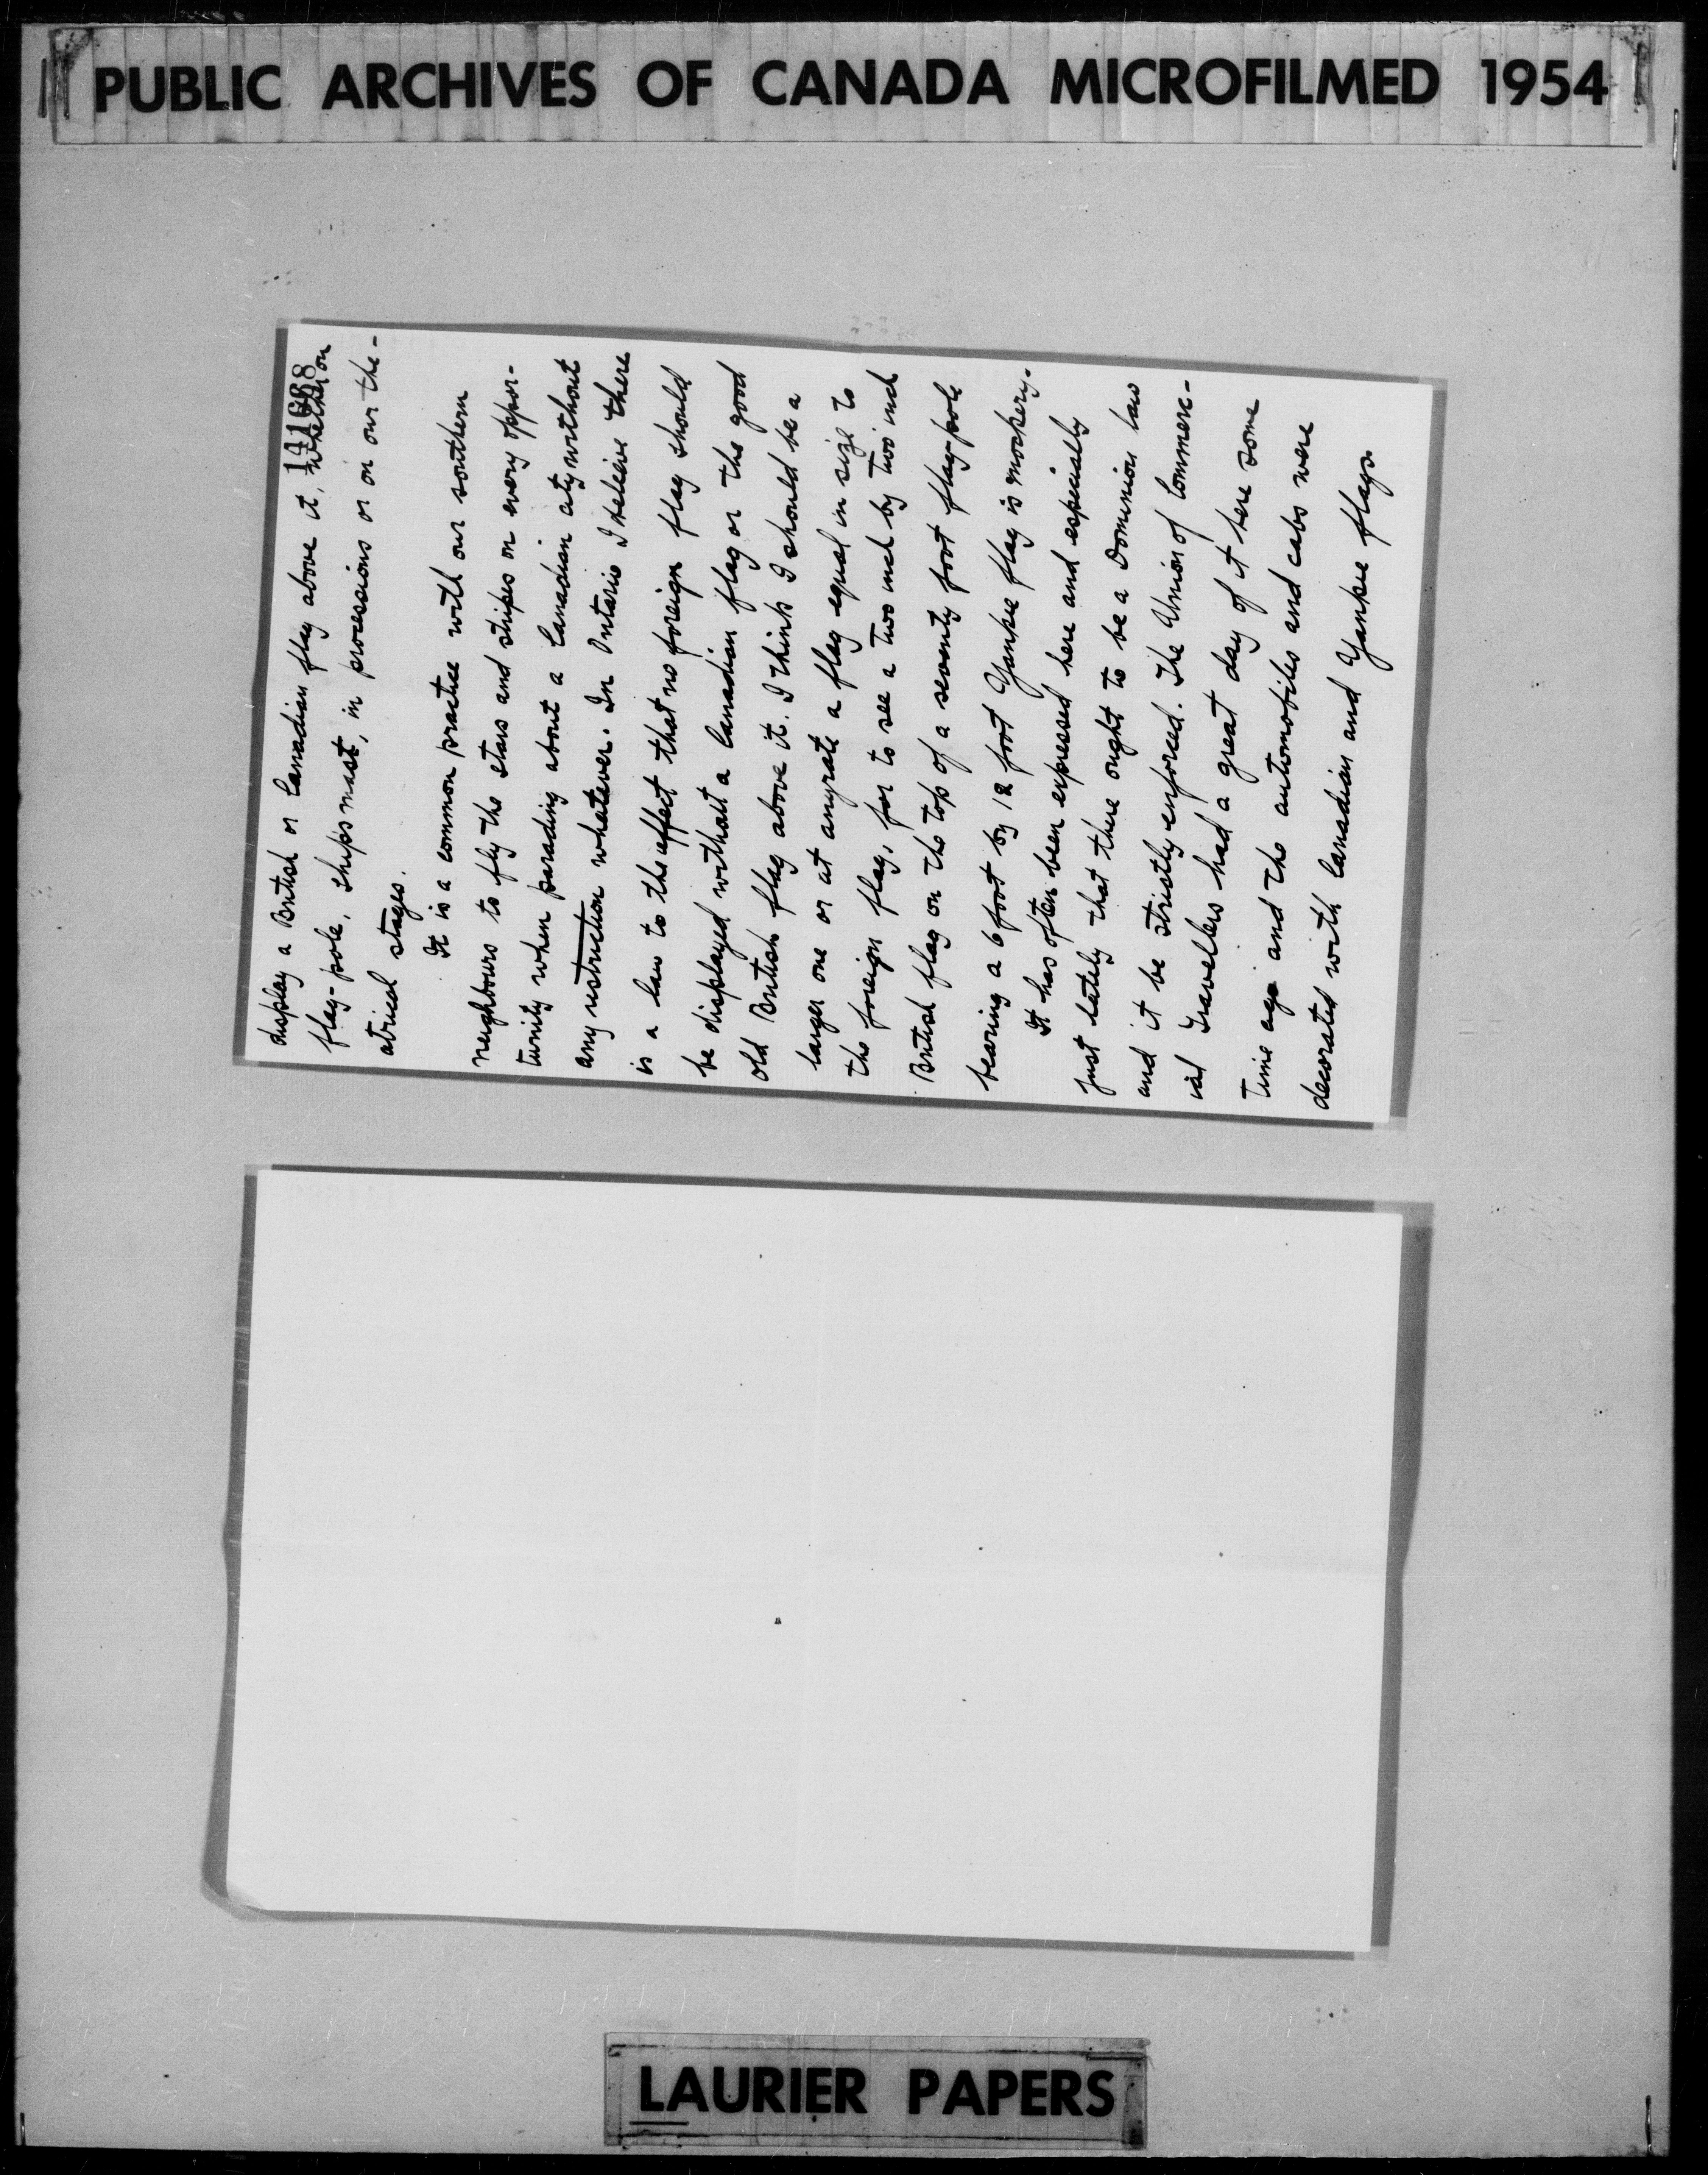 PUBLIC ARCHIVES OF CANADA MICROFILMED 1954
display a British or Canadian flag above it, whether on
flag-pole, ships mast, in processions or on our the-
atrical stages.
It is a common practice with our southern
neighbours to fly the stars and stripes on every oppor-
tunity when parading about a Canadian city without
any restriction whatever. In Ontario I beleive there
is a law to the effect that no foreign flag should
be displayed without a Canadian flag or the good
old British flag above it. I think I should be a
larger one or at anyrate a flag equal in size to
the foreign flag, for to see a two inch by two inch
British flag on the top of a seventy foot flag-pole
bearing a 6 foot by 12 foot Yankee flag is mockery.
It has often been expressed here and especially
just lately that there ought to be a Dominion law
and it be strictly enforced. The Union of Commerc-
ial Travellers had a great day of it here some
time ago and the automobiles and cabs were
decorated with Canadian and Yankee flags.
LAURIER PAPERS